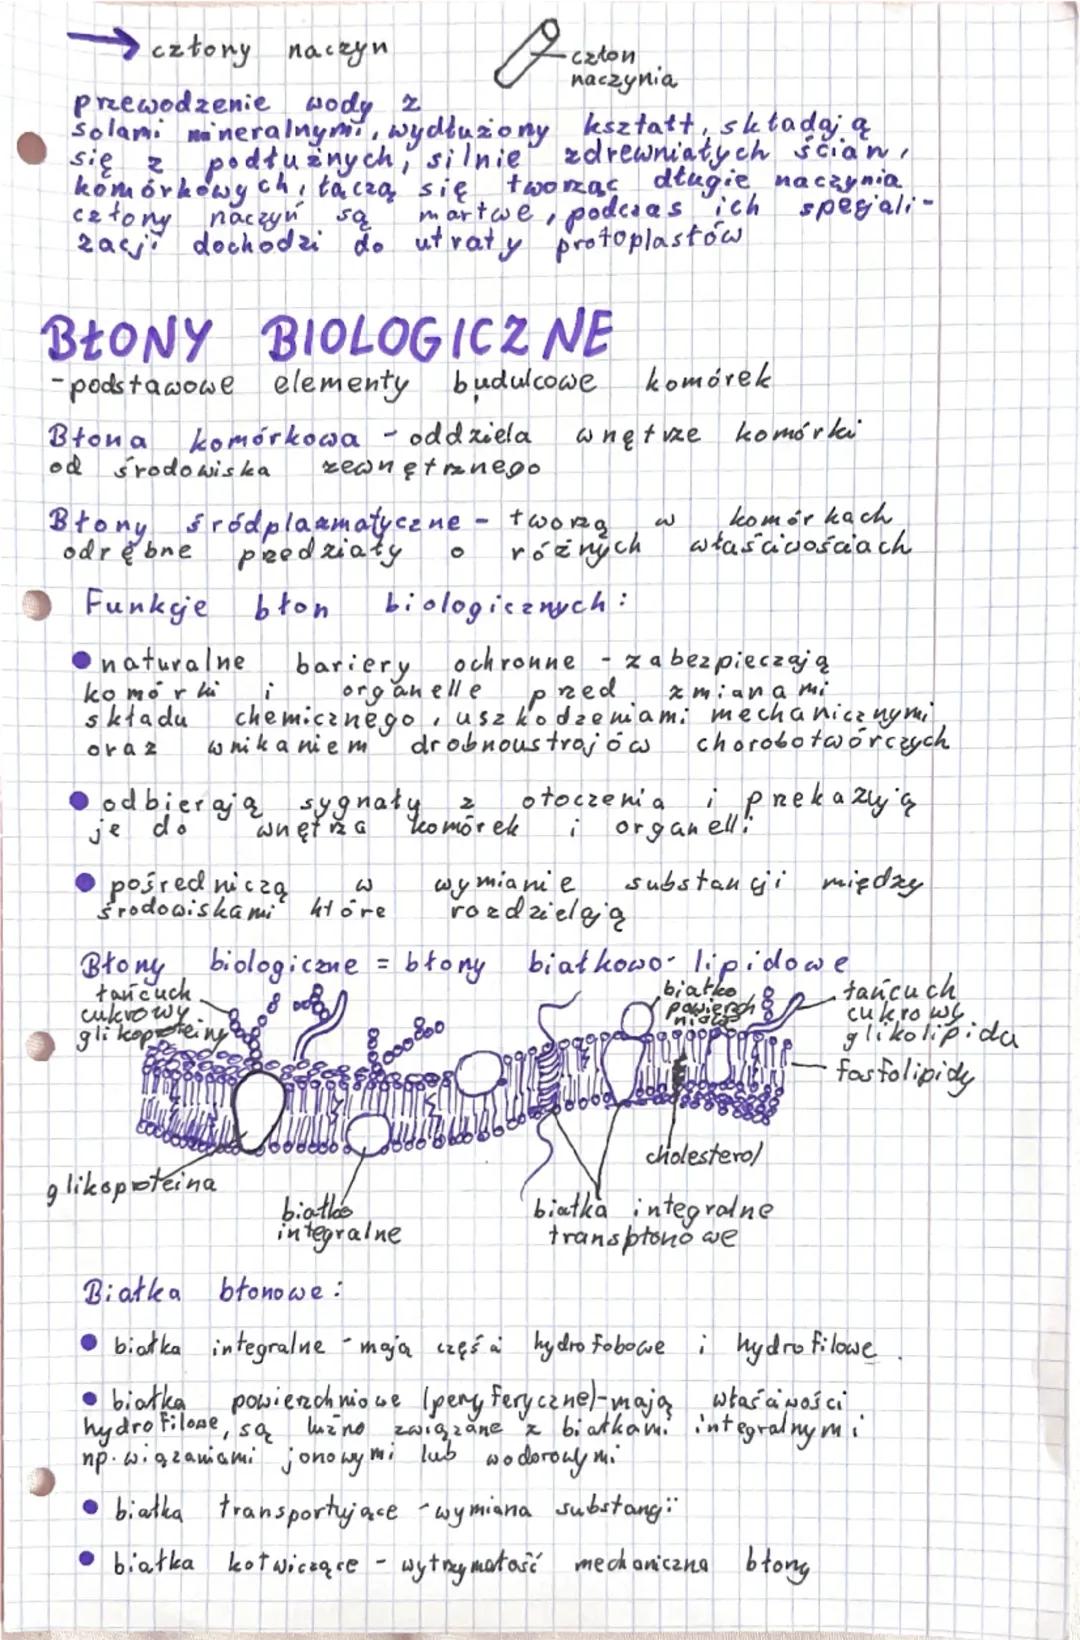 → człony naczyn
człon
naczynia
przewodzenie wody z
solami mineralnymi, wydłużony kształt, składają
się z podłużnych, silnie zdrewniałych ścian,
komórkowych, łączą się tworząc długie naczynia
człony naczyń są martwe, podczas ich specjali-
zacji dochodzi do utraty protoplastów
BŁONY BIOLOGICZNE
- podstawowe elementy budulcowe komórek
Błona komórkowa - oddziela wnętrze komórki
od środowiska zewnętrznego
Błony śródplazmatyczne - tworzą w komórkach
odrębne przedziały o różnych właściwościach
Funkcje błon biologicznych:
● naturalne bariery ochronne - zabezpieczają
komórki i organelle przed zmianami
składu chemicznego, uszkodzeniami mechanicznymi
oraz wnikaniem drobnoustrojów chorobotwórczych
● odbierają sygnały z otoczenia i przekazują
je do wnętrza komórek i organelli
● pośredniczą w wymianie substancji między
środowiskami które rozdzielają
Błony biologiczne = błony białkowo-lipidowe
łańcuch
cukrowy
glikoproteiny
białko
powierzch
niowe
łańcuch
cukrowy
glikolipidu
fosfolipidy
cholesterol
glikoproteina
białko
integralne
białka integralne
transbłonowe
Białka błonowe:
● białka integralne - mają części hydrofobowe i hydrofilowe
● białka powierzchniowe (peryferyczne) - mają właściwości
hydrofilowe, są luźno związane z białkami integralnymi
np. wiązaniami jonowymi lub wodorowymi
● białka transportujące - wymiana substancji
● białka kotwiczące - wytrzymałość mechaniczna błony